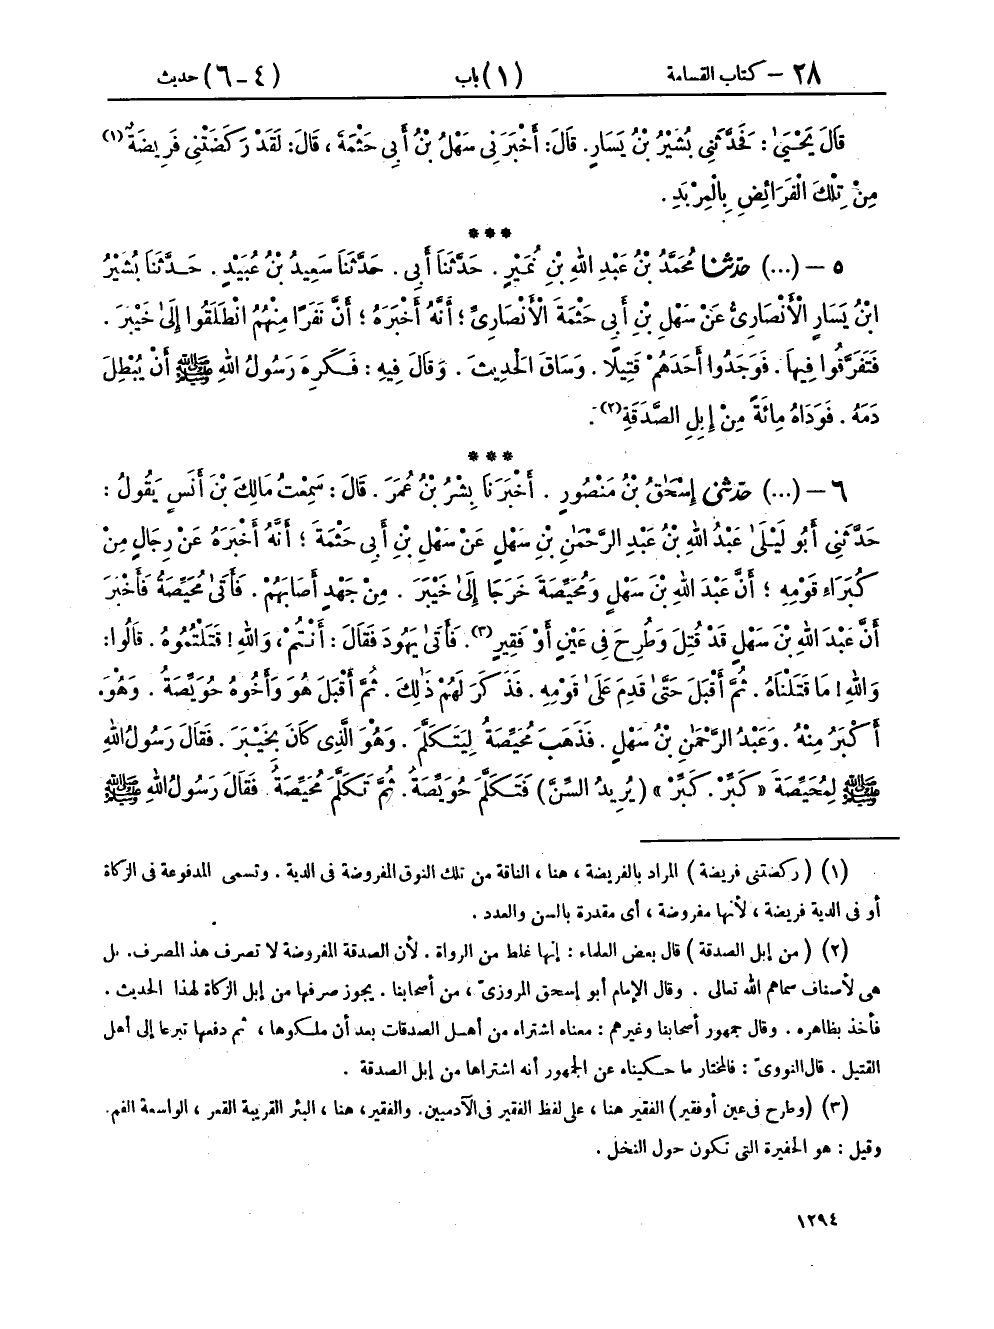 ٢٨ – كتاب القسامة (١) باب (٤ – ٦) حديث
قَالَ يَحْيَىٰ : فَحَدَّثَنِى بُشَيْرُ بْنُ يَسَارٍ. قَالَ: أَخْبَرَنِى سَهْلُ بْنُ أَبِى حَثْمَةَ ، قَالَ: لَقَدْ رَكَضَتْنِى فَرِيضَةٌ (١)
مِنْ تِلْكَ الْفَرَائِضِ بِالْمِرْبَدِ .
***
٥ – (...) حدثنا مُحَمَّدُ بْنُ عَبْدِ اللهِ بْنِ نُمَيْرٍ . حَدَّثَنَا أَبِى . حَدَّثَنَا سَعِيدُ بْنُ عُبَيْدٍ . حَدَّثَنَا بُشَيْرُ
ابْنُ يَسَارٍ الْأَنْصَارِىُّ عَنْ سَهْلِ بْنِ أَبِى حَثْمَةَ الْأَنْصَارِىِّ ؛ أَنَّهُ أَخْبَرَهُ ؛ أَنَّ نَفَرًا مِنْهُمُ انْطَلَقُوا إِلَىٰ خَيْبَرَ .
فَتَفَرَّقُوا فِيهَا . فَوَجَدُوا أَحَدَهُمْ قَتِيلًا . وَسَاقَ الْحَدِيثَ . وَقَالَ فِيهِ : فَكَرِهَ رَسُولُ اللهِ ﷺ أَنْ يُبْطِلَ
دَمَهُ . فَوَدَاهُ مِائَةً مِنْ إِبِلِ الصَّدَقَةِ (٢) .
***
٦ – (...) حدثنى إِسْحَٰقُ بْنُ مَنْصُورٍ . أَخْبَرَنَا بِشْرُ بْنُ عُمَرَ . قَالَ : سَمِعْتُ مَالِكَ بْنَ أَنَسٍ يَقُولُ :
حَدَّثَنِى أَبُو لَيْلَىٰ عَبْدُ اللهِ بْنُ عَبْدِ الرَّحْمَٰنِ بْنِ سَهْلٍ عَنْ سَهْلِ بْنِ أَبِى حَثْمَةَ ؛ أَنَّهُ أَخْبَرَهُ عَنْ رِجَالٍ مِنْ
كُبَرَاءِ قَوْمِهِ ؛ أَنَّ عَبْدَ اللهِ بْنَ سَهْلٍ وَمُحَيِّصَةَ خَرَجَا إِلَىٰ خَيْبَرَ . مِنْ جَهْدٍ أَصَابَهُمْ . فَأَتَىٰ مُحَيِّصَةُ فَأَخْبَرَ
أَنَّ عَبْدَ اللهِ بْنَ سَهْلٍ قَدْ قُتِلَ وَطُرِحَ فِى عَيْنٍ أَوْ فَقِيرٍ (٣) . فَأَتَىٰ يَهُودَ فَقَالَ : أَنْتُمْ ، وَاللهِ ! قَتَلْتُمُوهُ . قَالُوا :
وَاللهِ ! مَا قَتَلْنَاهُ . ثُمَّ أَقْبَلَ حَتَّىٰ قَدِمَ عَلَىٰ قَوْمِهِ . فَذَكَرَ لَهُمْ ذَٰلِكَ . ثُمَّ أَقْبَلَ هُوَ وَأَخُوهُ حُوَيِّصَةُ . وَهُوَ
أَكْبَرُ مِنْهُ . وَعَبْدُ الرَّحْمَٰنِ بْنُ سَهْلٍ . فَذَهَبَ مُحَيِّصَةُ لِيَتَكَلَّمَ . وَهُوَ الَّذِى كَانَ بِخَيْبَرَ . فَقَالَ رَسُولُ اللهِ
ﷺ لِمُحَيِّصَةَ « كَبِّرْ . كَبِّرْ » ( يُرِيدُ السِّنَّ ) فَتَكَلَّمَ حُوَيِّصَةُ . ثُمَّ تَكَلَّمَ مُحَيِّصَةُ . فَقَالَ رَسُولُ اللهِ ﷺ
(١) ( ركضتنى فريضة ) المراد بالفريضة ، هنا ، الناقة من تلك النوق المفروضة فى الدية . وتسمى المدفوعة فى الزكاة
أو فى الدية فريضة ، لأنها مفروضة ، أى مقدرة بالسن والعدد .
(٢) ( من إبل الصدقة ) قال بعض العلماء : إنها غلط من الرواة . لأن الصدقة المفروضة لا تصرف هذ المصرف. بل
هى لأصناف سماهم الله تعالى . وقال الإمام أبو إسحق المروزىّ ، من أصحابنا . يجوز صرفها من إبل الزكاة لهذا الحديث .
فأخذ بظاهره . وقال جمهور أصحابنا وغيرهم : معناه اشتراه من أهل الصدقات بعد أن ملكوها ، ثم دفعها تبرعا إلى أهل
القتيل . قال النووىّ : فالمختار ما حكيناه عن الجمهور أنه اشتراها من إبل الصدقة .
(٣) ( وطرح فى عين أو فقير ) الفقير هنا ، على لفظ الفقير فى الآدميين. والفقير، هنا ، البئر القريبة القعر ، الواسعة الفم.
وقيل : هو الحفيرة التى تكون حول النخل .
١٢٩٤